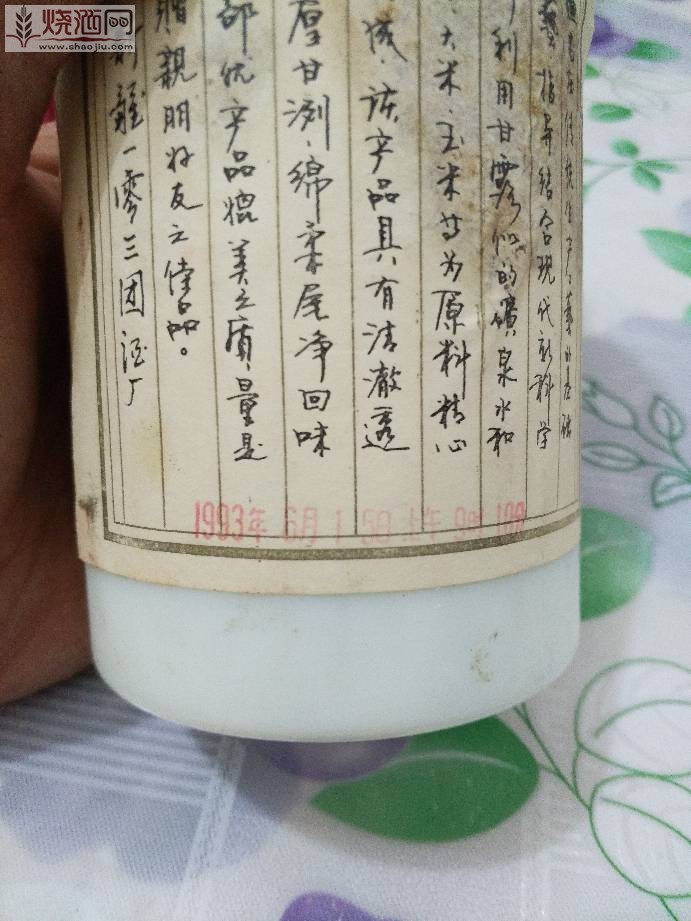 烧酒网
www.shaojiu.com
艺的基础
指导结合现代新科学
利用甘露似的矿泉水和
大米、玉米等为原料精心
该产品具有清澈透
厚甘冽、绵柔尾净回味
部优产品媲美之质量是
亲朋好友之佳品。
一零三团酒厂
1993年 6月 15日上午 9时